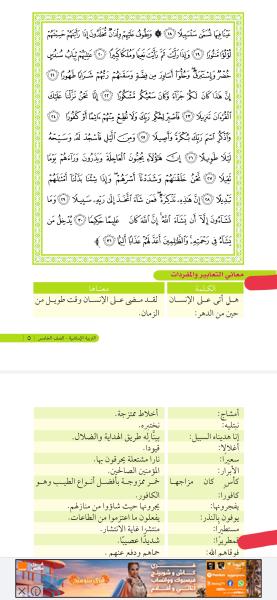 عَيْنًا فِيهَا تُسَمَّىٰ سَلْسَبِيلًا ۝١٨ ۞ وَيَطُوفُ عَلَيْهِمْ وِلْدَٰنٌ مُّخَلَّدُونَ إِذَا رَأَيْتَهُمْ حَسِبْتَهُمْ
لُؤْلُؤًا مَّنثُورًا ۝١٩ وَإِذَا رَأَيْتَ ثَمَّ رَأَيْتَ نَعِيمًا وَمُلْكًا كَبِيرًا ۝٢٠ عَٰلِيَهُمْ ثِيَابُ سُندُسٍ
خُضْرٌ وَإِسْتَبْرَقٌ وَحُلُّوٓا۟ أَسَاوِرَ مِن فِضَّةٍ وَسَقَىٰهُمْ رَبُّهُمْ شَرَابًا طَهُورًا ۝٢١
إِنَّ هَٰذَا كَانَ لَكُمْ جَزَآءً وَكَانَ سَعْيُكُم مَّشْكُورًا ۝٢٢ إِنَّا نَحْنُ نَزَّلْنَا عَلَيْكَ
الْقُرْءَانَ تَنزِيلًا ۝٢٣ فَاصْبِرْ لِحُكْمِ رَبِّكَ وَلَا تُطِعْ مِنْهُمْ ءَاثِمًا أَوْ كَفُورًا ۝٢٤
وَاذْكُرِ اسْمَ رَبِّكَ بُكْرَةً وَأَصِيلًا ۝٢٥ وَمِنَ الَّيْلِ فَاسْجُدْ لَهُۥ وَسَبِّحْهُ
لَيْلًا طَوِيلًا ۝٢٦ إِنَّ هَٰٓؤُلَآءِ يُحِبُّونَ الْعَاجِلَةَ وَيَذَرُونَ وَرَآءَهُمْ يَوْمًا
ثَقِيلًا ۝٢٧ نَّحْنُ خَلَقْنَٰهُمْ وَشَدَدْنَآ أَسْرَهُمْ وَإِذَا شِئْنَا بَدَّلْنَآ أَمْثَٰلَهُمْ
تَبْدِيلًا ۝٢٨ إِنَّ هَٰذِهِۦ تَذْكِرَةٌ فَمَن شَآءَ اتَّخَذَ إِلَىٰ رَبِّهِۦ سَبِيلًا ۝٢٩ وَمَا
تَشَآءُونَ إِلَّآ أَن يَشَآءَ اللَّهُ إِنَّ اللَّهَ كَانَ عَلِيمًا حَكِيمًا ۝٣٠ يُدْخِلُ مَن
يَشَآءُ فِى رَحْمَتِهِۦ وَالظَّٰلِمِينَ أَعَدَّ لَهُمْ عَذَابًا أَلِيمًا ۝٣١
معاني التعابير والمفردات
الكلمة معناها
هل أتى على الإنسان حين من الدهر: لقد مضى على الإنسان وقت طويل من الزمان.
التربية الإسلامية - الصف الخامس | ٥
أمشاج: أخلاط ممتزجة.
نبتليه: نختبره.
إنا هديناه السبيل: بينّا له طريق الهداية والضلال.
أغلالا: قيودا.
سعيرا: نارا مشتعلة يحرقون بها.
الأبرار: المؤمنين الصالحين.
كأس كان مزاجها كافورا: خمر ممزوجة بأفضل أنواع الطيب وهو الكافور.
يفجرونها: يجرونها حيث شاؤوا من منازلهم.
يوفون بالنذر: يفعلون ما اعتزموا من الطاعات.
مستطيرا: منتشرا غاية الانتشار.
قمطريرًا: شديدًا عصيبًا.
فوقاهم الله: حماهم ودفع عنهم.